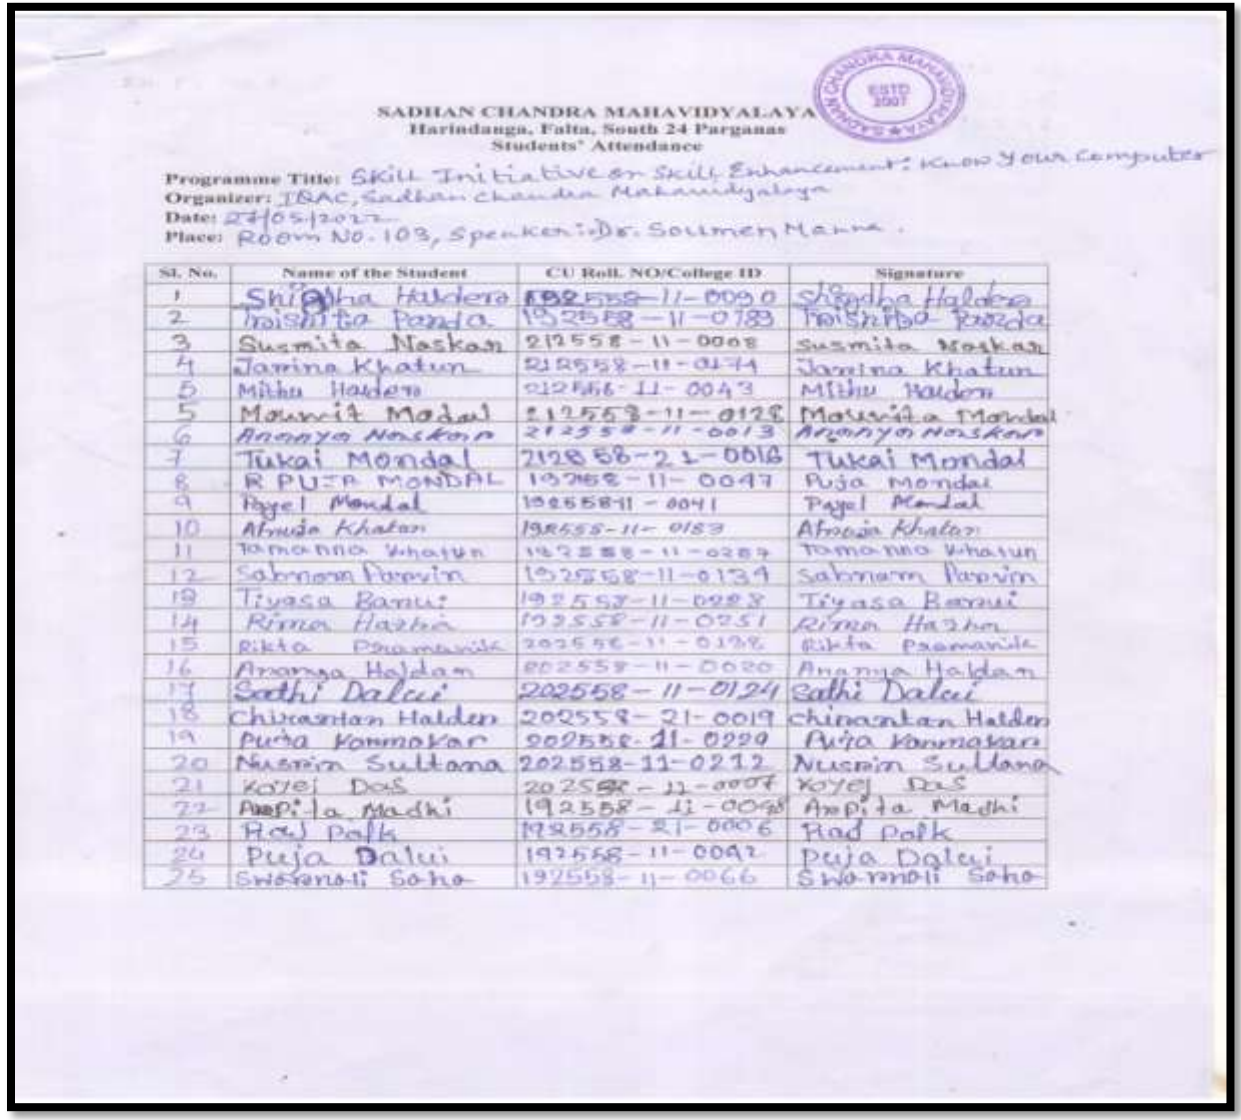 SADHAN CHANDRA MAHAVIDYALAYA
ESTD
2007
SADHAN CHANDRA MAHAVIDYALAYA
Harindanga, Falta, South 24 Parganas
Students' Attendance
Programme Title: Skill Initiative on Skill Enhancement: Know Your Computer
Organizer: IQAC, Sadhan Chandra Mahavidyalaya
Date: 27/05/2022
Place: Room No. 103, Speaker: Dr. Soumen Manna.
Sl. No. Name of the Student CU Roll. NO/College ID Signature
1 Haldero 192558-11-0090 Haldero
2 Panda 192558-11-0789 Panda
3 Susmita Naskar 212558-11-0008 Susmita Naskar
4 Jamina Khatun 212558-11-0174 Jamina Khatun
5 Mithu Haldero 212556-11-0043 Mithu Haldero
5 Moumit Modal 212558-11-0128 Moumita Mondal
6 Ananya Naskar 212558-11-0013 Ananya Naskar
7 Tukai Mondal 212858-21-0016 Tukai Mondal
8 R PUJA MONDAL 192558-11-0047 Puja Mondal
9 Payel Mondal 19255811-0041 Payel Mondal
10 Khatun 192558-11-0183 Khatun
11 Tamanna Khatun 192558-11-0287 Tamanna Khatun
12 Sabnam Parvin 192558-11-0139 Sabnam Parvin
13 Tiyasa Barui 192558-11-0228 Tiyasa Barui
14 Rima Hazra 192558-11-0251 Rima Hazra
15 Rikta Pramanik 202558-11-0138 Rikta Pramanik
16 Ananya Haldar 202558-11-0020 Ananya Haldar
17 Sathi Dalui 202558-11-0124 Sathi Dalui
18 Chirantan Halder 202558-21-0019 Chirantan Halder
19 Puja Karmakar 202558-11-0229 Puja Karmakar
20 Nusrin Sultana 202558-11-0212 Nusrin Sultana
21 Koyel Das 202558-11-0007 Koyel Das
22 Arpita Madhi 192558-11-0098 Arpita Madhi
23 192558-21-0006
24 Puja Dalui 192558-11-0092 Puja Dalui
25 Swarnali Saha 192558-11-0066 Swarnali Saha